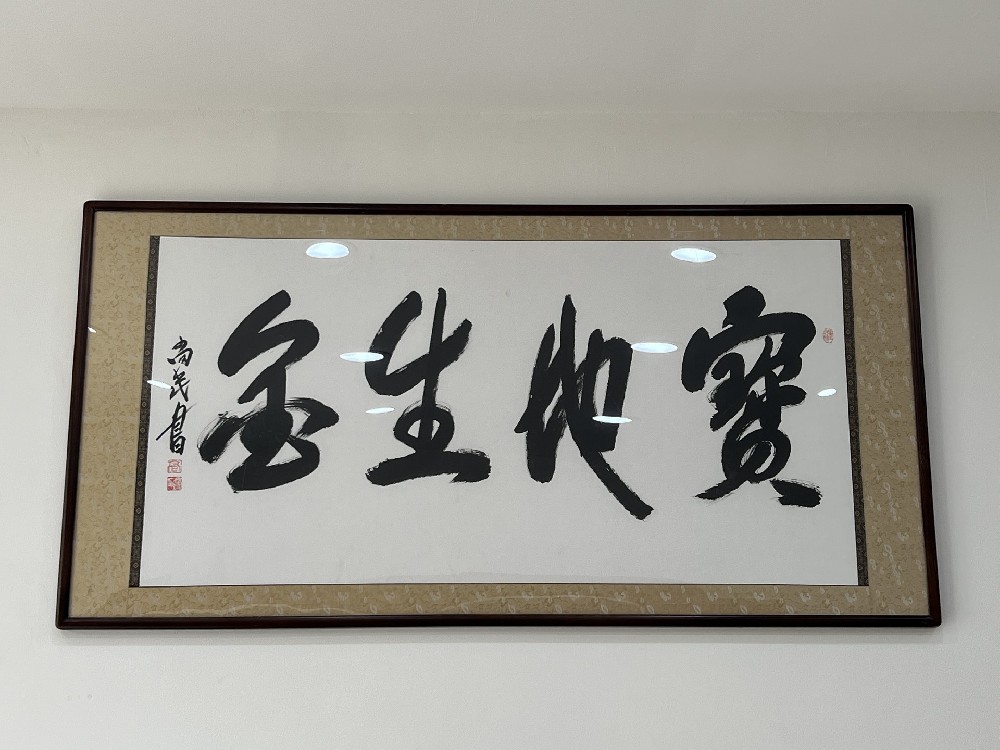 寶地生金
尚民書